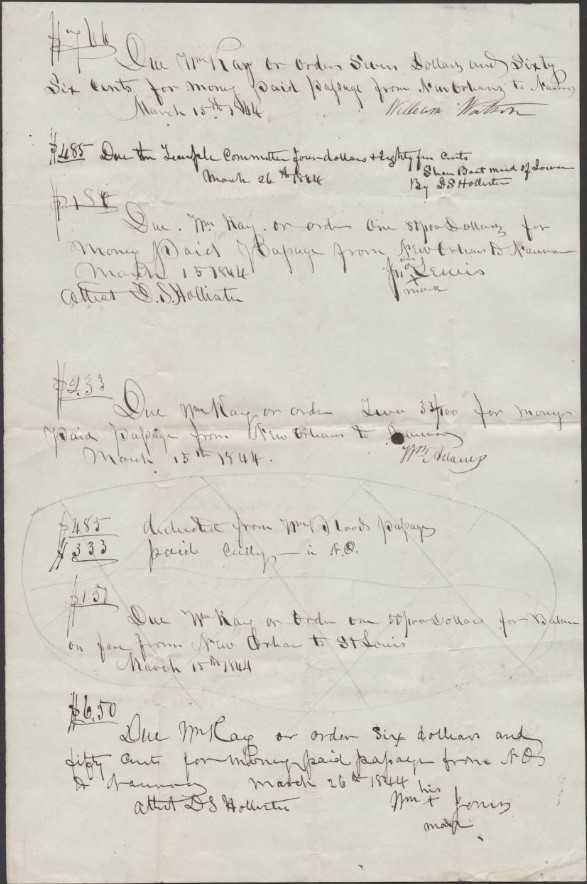 $7.66
Due Wm Kay or order Seven Dollars and Sixty
Six Cents for money paid passage from New Orleans to Nauvoo
March 15th 1844 William Watson
$4.85 Due the Temple Committee four dollars & Eighty five Cents
March 26th 1844 Steam Boat maid of Iowa
By D S Hollister
$1.50
Due Wm Kay or order One 50/100 Dollars for
Money Paid Passage from New Orleans to Nauvoo
March 15 1844 Lewis
Attest D. S. Hollister mark
$2.33
Due Wm Kay or order Two 33/100 for money
Paid Passage from New Orleans to Nauvoo
March 15th 1844. Wm Adams
$4.85 deducted from Wm passage
$3.33 paid in N.O.
$1.50
Due Wm Kay or Order one 50/100 Dollars for Balance
on fare from New Orleans to St Louis
March 15th 1844
$6.50
Due Wm Kay or order Six dollars and
fifty Cents for money paid passage from N.O.
to Nauvoo March 26th 1844 his
Attest D S Hollister Wm + Jones
mark